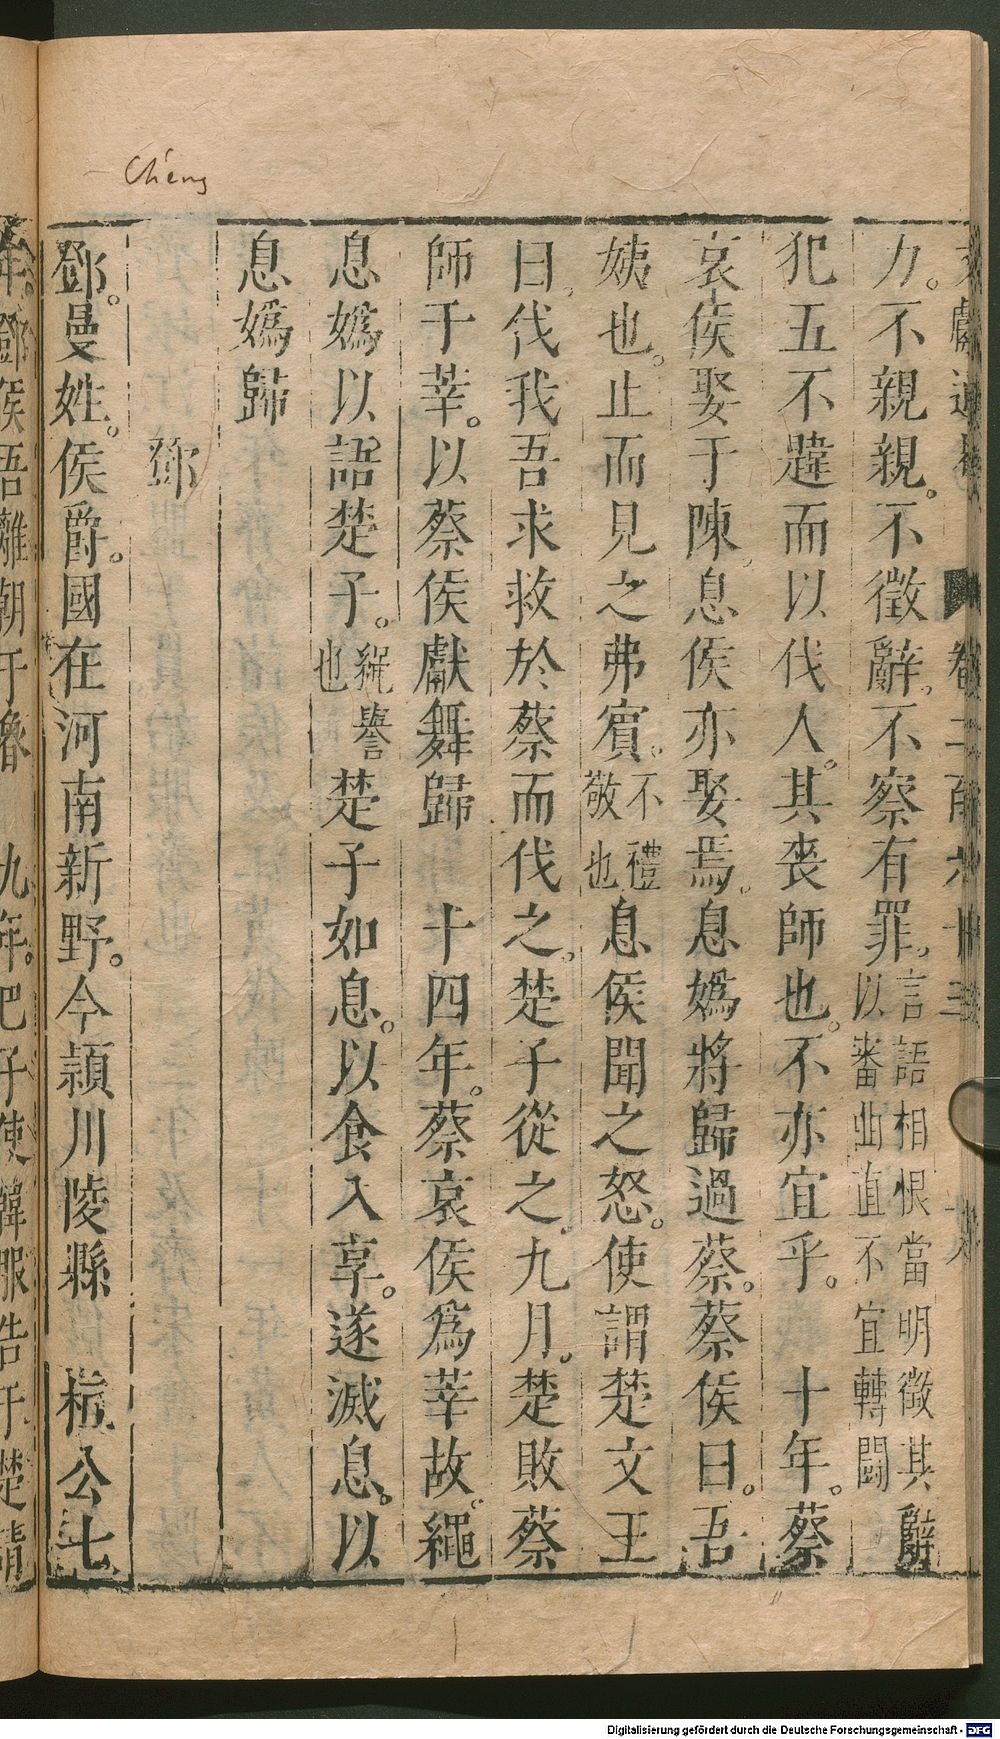 Chêng
文獻通考 卷二百六十三
力。不親親。不徵辭。不察有罪。言語相恨當明徵其辭以審曲直不宜轉鬬
犯五不韙而以伐人。其喪師也。不亦宜乎。 十年。蔡
哀侯娶于陳。息侯亦娶焉。息媯將歸過蔡。蔡侯曰。吾
姨也。止而見之弗賓。不禮敬也息侯聞之怒。使謂楚文王
曰。伐我吾求救於蔡而伐之。楚子從之。九月。楚敗蔡
師于莘。以蔡侯獻舞歸 十四年。蔡哀侯爲莘故。繩
息媯以語楚子。繩譽也楚子如息。以食入享。遂滅息。以
息媯歸
鄧
鄧。曼姓。侯爵。國在河南新野。今潁川陵縣 桓公七
年。鄧侯吾離朝于魯 九年。巴子使韓服告于楚請
Digitalisierung gefördert durch die Deutsche Forschungsgemeinschaft - DFG